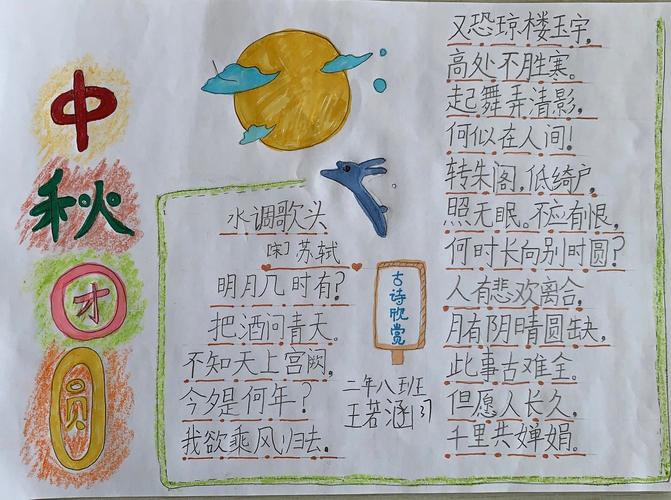 中秋团圆
水调歌头
[宋] 苏轼
明月几时有?
把酒问青天。
不知天上宫阙,
今夕是何年?
我欲乘风归去,
古诗欣赏
二年八班
王若涵
又恐琼楼玉宇,
高处不胜寒。
起舞弄清影,
何似在人间!
转朱阁,低绮户,
照无眠。不应有恨,
何时长向别时圆?
人有悲欢离合,
月有阴晴圆缺,
此事古难全。
但愿人长久,
千里共婵娟。